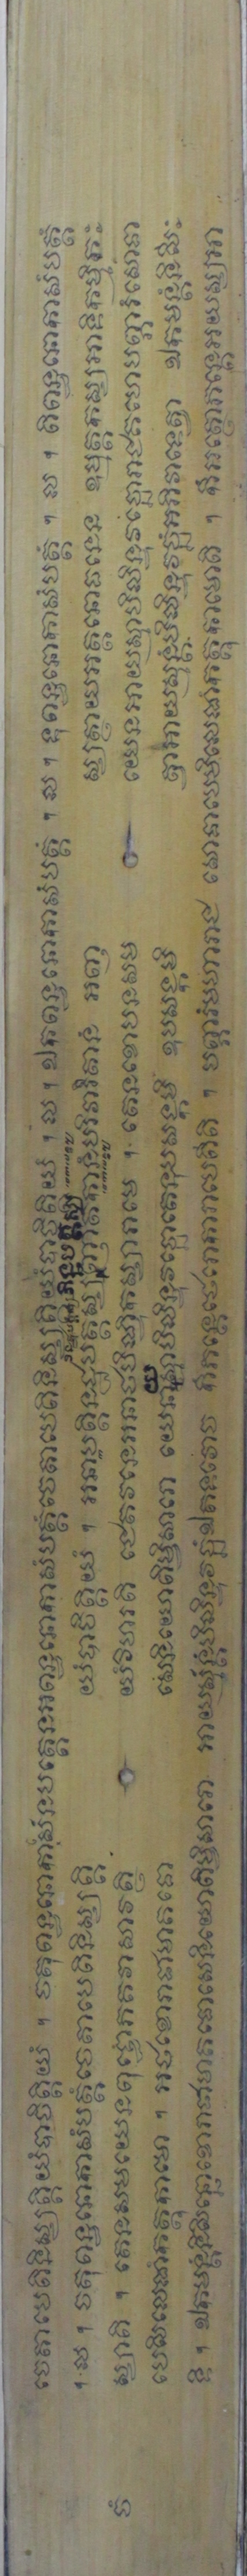 ចេតាបេតិនិស្សគ្គិយំបាចិត្តិយំ ។ ចតុពន្ធនោកាសំនបត្តេនអពន្ធនោកាសំបត្តំចេតាបេតិនិស្សគ្គិយំបាចិត្តិយំ ។ ល ។ ឯកពន្ធនោកាសំបត្តំ ។ ល ។ ទ្វិពន្ធនោកាសំបត្តំ ។ ល ។ តិពន្ធនោកាសំបត្តំ
។ ល ។ ចតុពន្ធនោកាសំបត្តំចេតាបេតិនិស្សគ្គិ យំបាចិត្តិយំ ។ អនាបត្តិនដ្ឋបត្តស្សភិន្នបត្តស្សញាតកានំបវារិតានំ អញ ស្សត្ថាយអត្តនោធនេន ឧម្មត្តកស្សអាទិកម្មិក
ចំ ស្សាតិ ។ តេនសមយេនពុទ្ធោភគវាសាវត្ថិ យំវិហរតិ ជេតវនេអនាថបិណ្ឌិកស្សារាមេ ។ តេនខោបនសម យេនអាយស្មាបិលិន្ទវច្ឆោរាជគហេបព្ភារំសោធា
បេតិលេណំកត្តុកាមោ ។ អថខោរាជាមាគធោ សេនិយោពិម្ពិសារោ យេនាយស្មាបិលិន្ទវច្ឆោតេនុបសង្កមិ ឧបសង្កមិ ត្វាអាយស្មន្តំបិលិន្ទវច្ឆំអភិវាទេត្វា ឯកមន្តំនិសី
ទិ ។ ឯកមន្តំនិសិន្នោខោរាជាមាគធោសេនិយោពិម្ពិសារោ អាយស្មន្តំបិលិន្ទវច្ឆំឯតទវោច កិំភន្តេថេរោការាបេតីតិ ។ បព្ភារំមហារាជ សោធាបេមិលេណំកត្តុកាមោតិ ។ អត្ថោភន្តេអយស្សអា